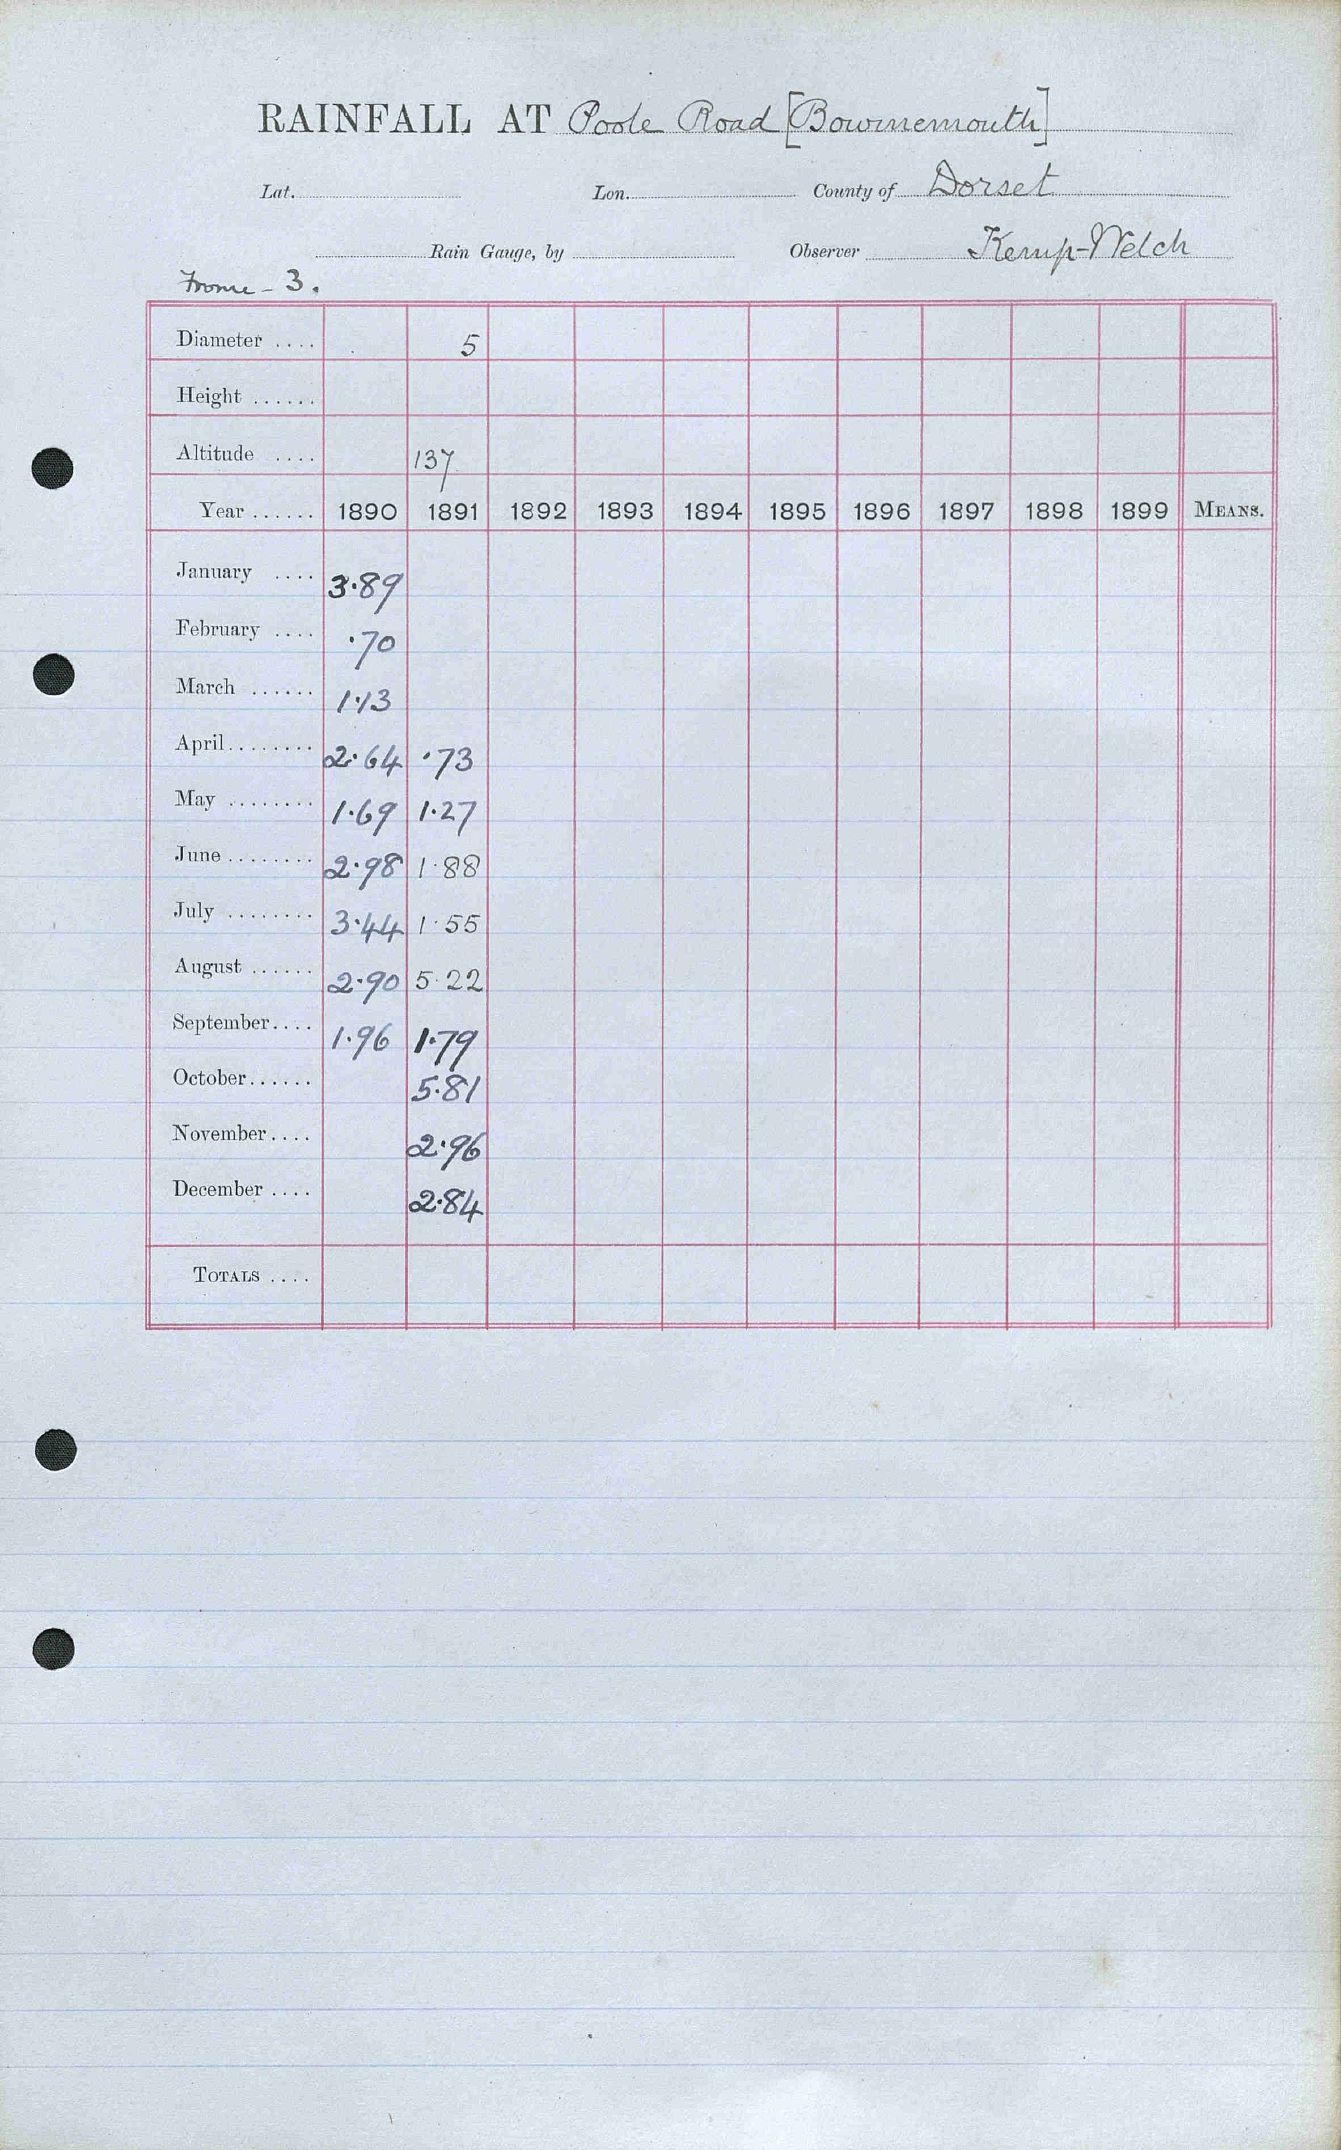 RAINFALL AT Poole Road [Bournemouth]
Lat. Lon. County of Dorset
Rain Gauge, by Observer Kemp-Welch
Frome - 3.
Diameter .... 5
Height ......
Altitude .... 137
Year ...... 1890 1891 1892 1893 1894 1895 1896 1897 1898 1899 MEANS.
January .... 3.89
February .... .70
March ...... 1.13
April ........ 2.64 .73
May ........ 1.69 1.27
June ........ 2.98 1.88
July ........ 3.44 1.55
August ...... 2.90 5.22
September.... 1.96 1.79
October...... 5.81
November.... 2.96
December .... 2.84
TOTALS ....